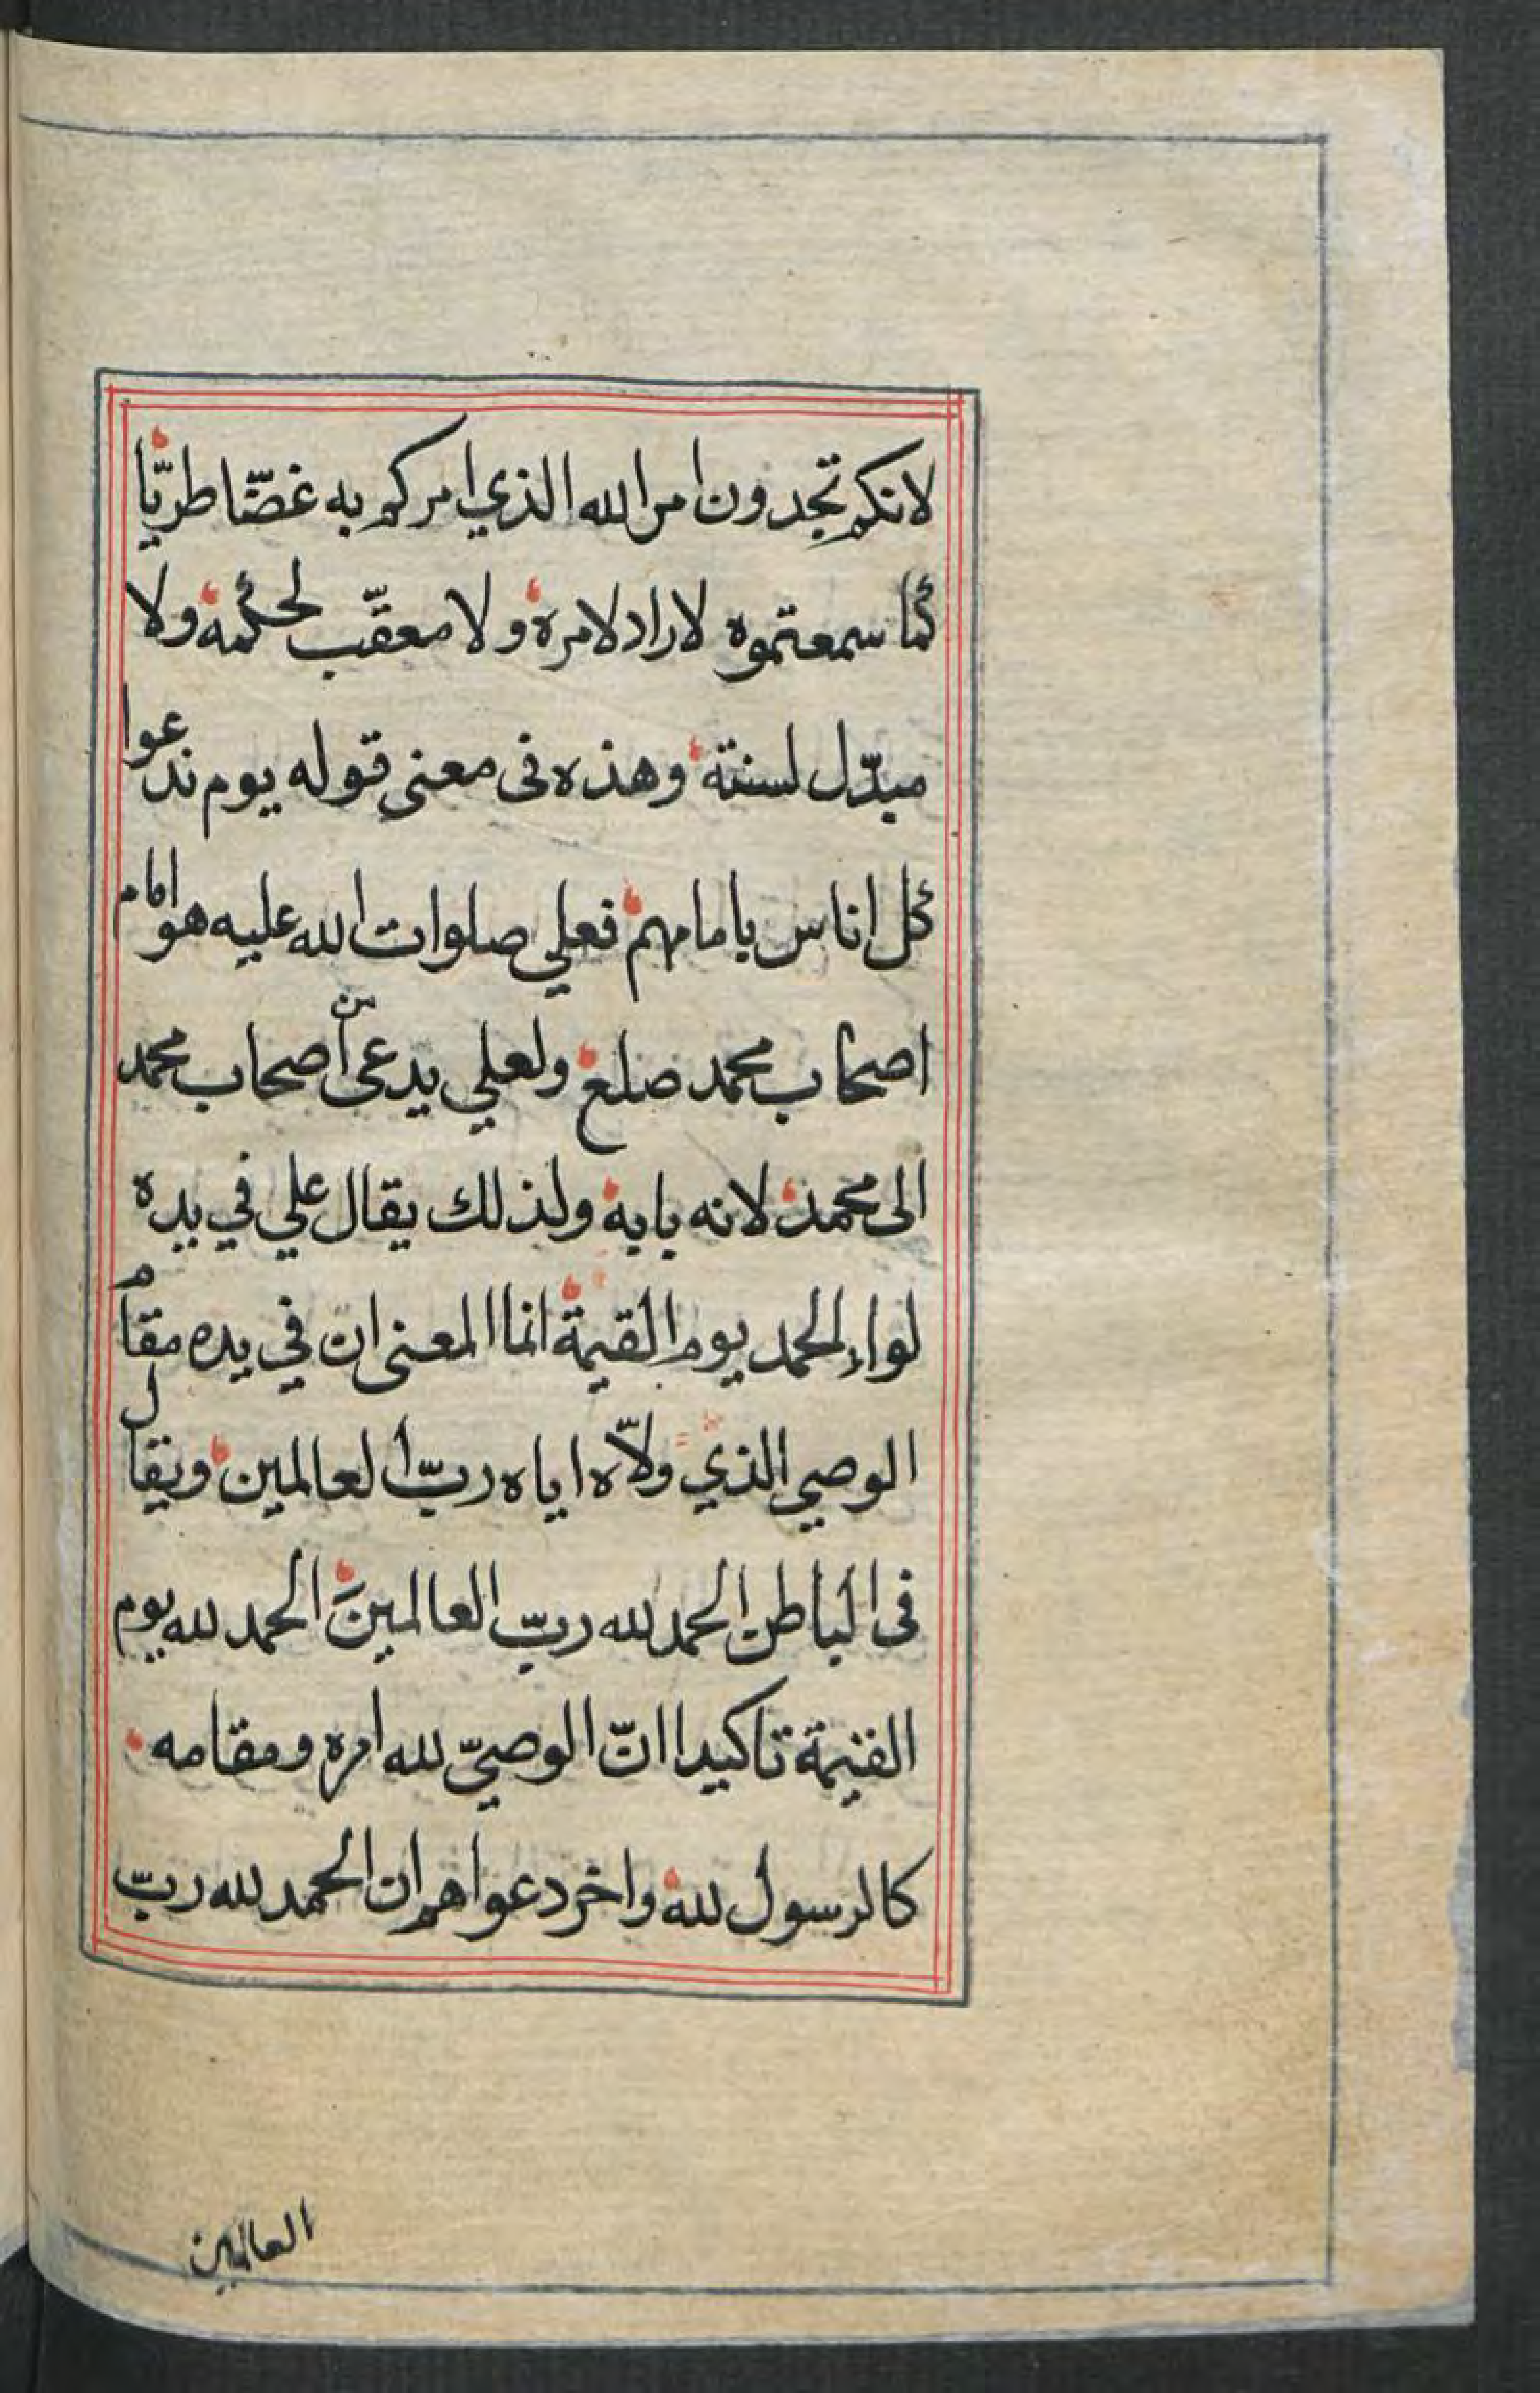 لانكم تجدون امر الله الذي امركم به غضّا طريّا
كما سمعتموه لاراد لامره ولا معقّب لحكمه ولا
مبدّل لسنته وهذه فى معنى قوله يوم ندعوا
كل اناس بامامهم فعلي صلوات الله عليه هو امام
اصحاب محمد صلع ولعلي يدعى من اصحاب محمد
الى محمد لانه بابه ولذلك يقال علي في يده
لواء الحمد يوم القيمة انما المعنى ان في يده مقام
الوصي الذي ولّاه اياه ربّ العالمين ويقال
فى الباطن الحمد لله ربّ العالمينَ الحمد لله يوم
القيمة تاكيدا انّ الوصيّ لله امره ومقامه
كالرسول لله واخر دعواهم ان الحمد لله ربّ
العالمين